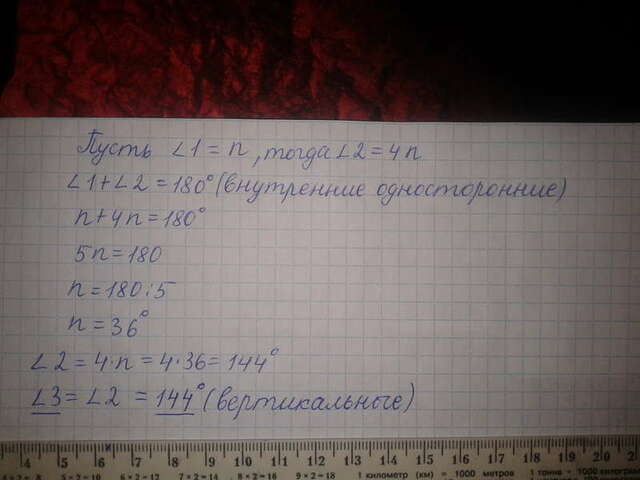 Пусть ∠1 = n, тогда ∠2 = 4n
∠1+∠2 = 180° (внутренние односторонние)
n+4n = 180°
5n = 180
n = 180:5
n = 36°
∠2 = 4·n = 4·36 = 144°
∠3 = ∠2 = 144° (вертикальные)
4 5 6 7 8 9 10 11 12 13 14 15 16 17 18 19 20
5×2=10 6×2=12 7×2=14 8×2=16 9×2=18 1 километр (км) = 1000 метров 1 тонна = 1000 килограмм